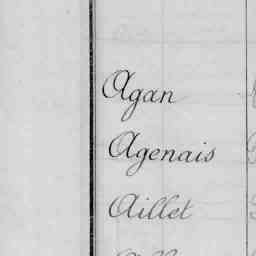 Agan
Agenais
Aillet